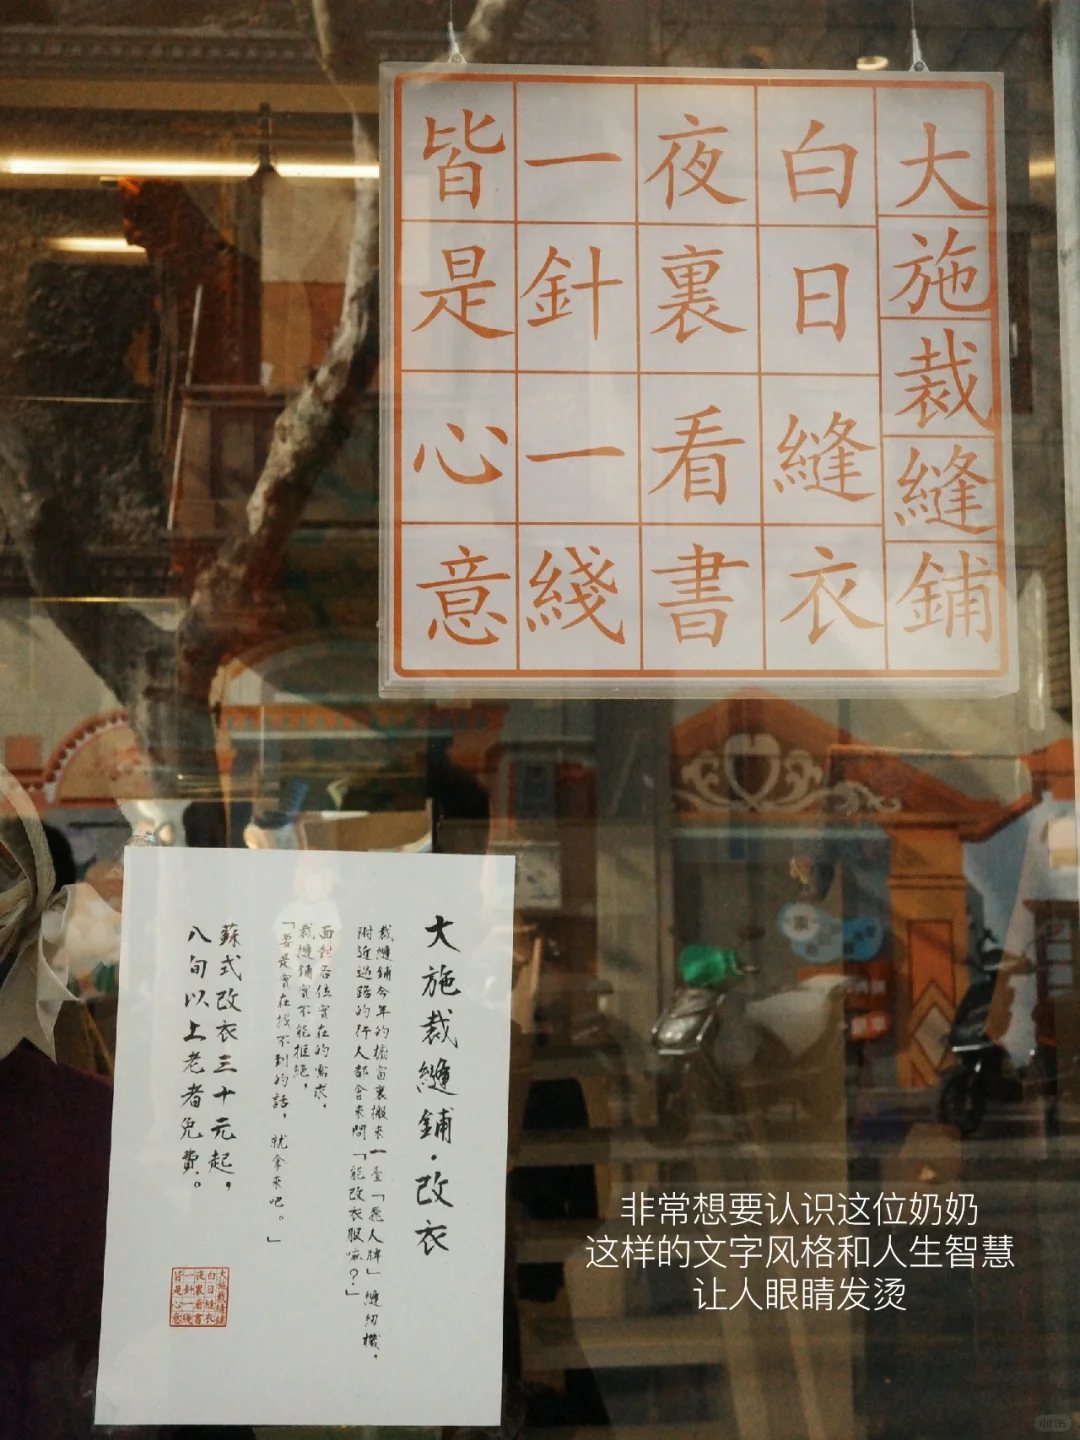 大施裁縫鋪
白日縫衣
夜裏看書
一針一綫
皆是心意
大施裁縫鋪·改衣
裁縫鋪今年的櫥窗裏搬來一臺「飛人牌」縫紉機，
附近過路的行人都會來問「能改衣服嘛？」
面對各位實在的需求，
裁縫鋪實不能拒絕，
「要是實在找不到的話，就拿來吧。」
蘇式改衣三十元起，
八旬以上老者免費。
大施裁縫鋪
白日縫衣
夜裏看書
一針一綫
皆是心意
非常想要认识这位奶奶
这样的文字风格和人生智慧
让人眼睛发烫